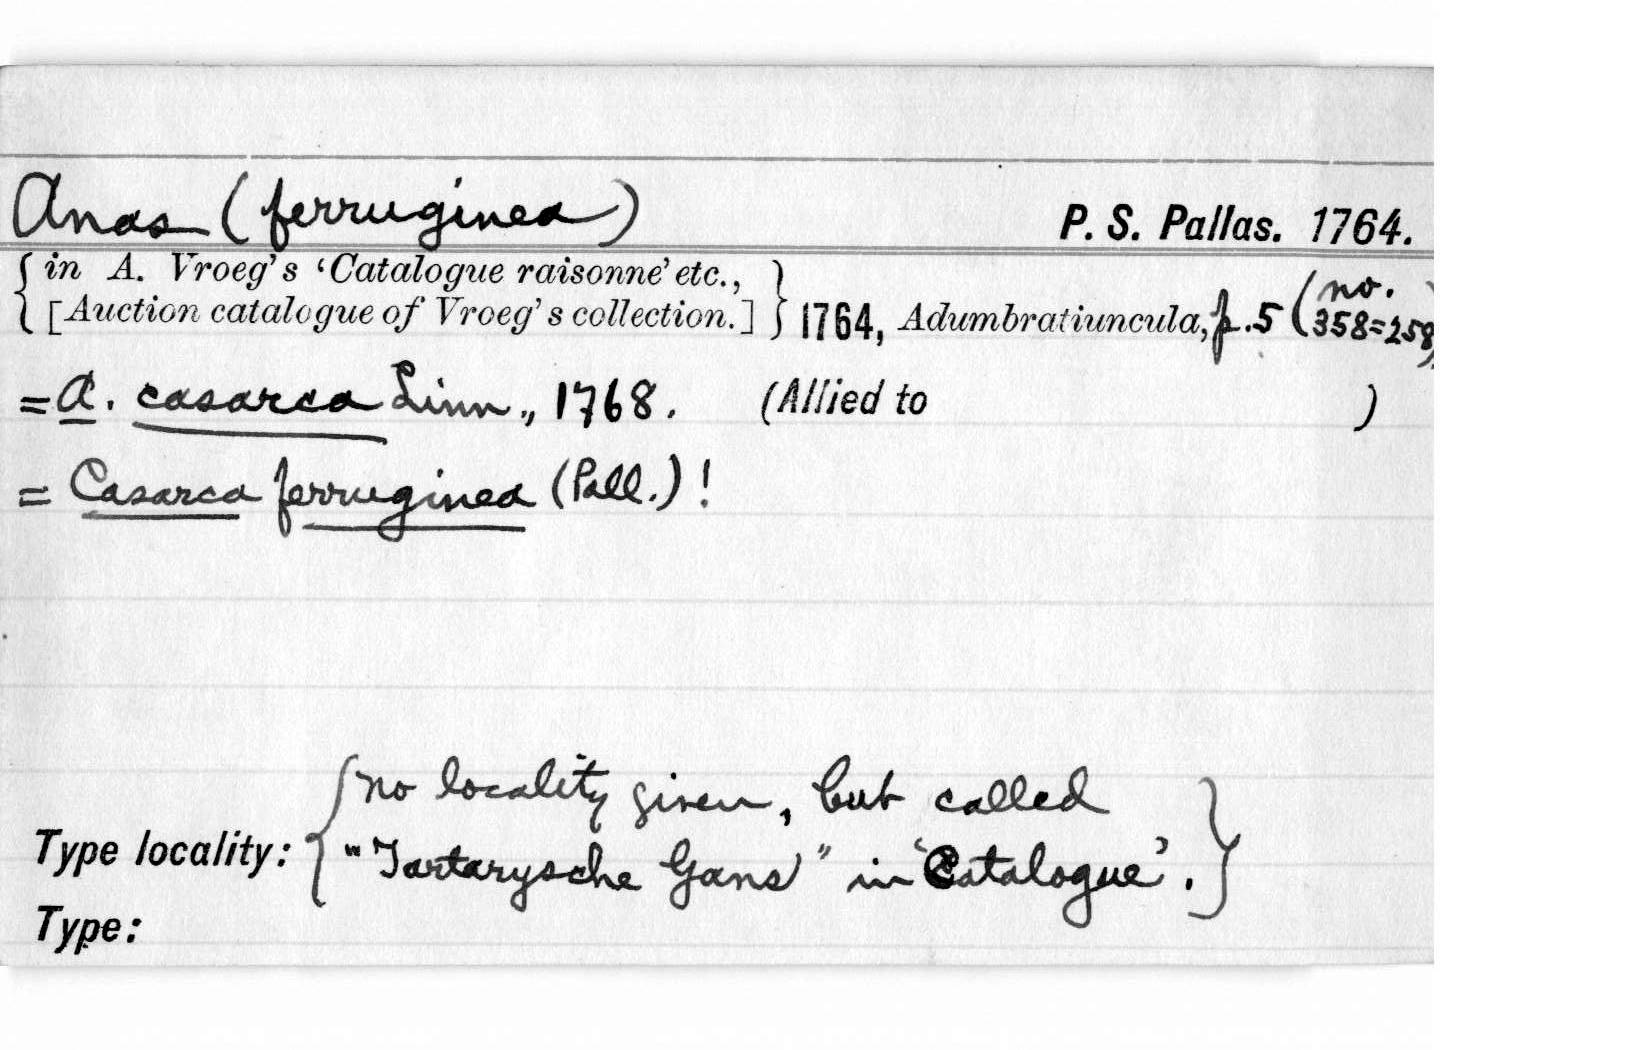 Anas (ferruginea) P. S. Pallas. 1764.
{ in A. Vroeg's ‘Catalogue raisonne’ etc., }
{ [Auction catalogue of Vroeg's collection.] } 1764, Adumbratiuncula, p. 5 (no. 358=258)
= A. casarca Linn., 1768. (Allied to )
= Casarca ferruginea (Pall.) !
{ no locality given, but called }
Type locality: { "Tartarysche Gans" in ‘Catalogue’. }
Type: